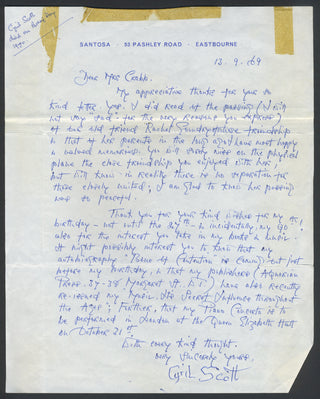 Cyril Scott
died on
1970
SANTOSA · 53 PASHLEY ROAD · EASTBOURNE
13. 9. 69
Dear Mrs
My appreciative thanks for your so
kind letter. Yes, I did read of the passing (I will
not say "sad" for the very reasons you express)
of our old friend Rachel whose friendship
& that of her parents in the long ago I have most happy
& valued memories. You will surely miss on the physical
plane the close friendship you enjoyed with her;
but will know in reality there is no separation for
those closely united; I am glad to know her passing
was so peaceful.
Thank you for your kind wishes for my
birthday — not until the 27th & incidentally my 90!
also for the interest you take in my books & music.
It might possibly interest you to know that my
autobiography "Bone of Contention" is coming out just
before my Birthday, & that my publishers (Aquarian
Press. 37-38 Margaret St. W.1) have also recently
re-issued my Music. Its Secret Influence throughout
the Ages; Further, that my Piano Concerto is to
be performed in London at the Queen Elizabeth Hall
on October 21st.
With every kind thought.
Very sincerely yours.
Cyril Scott